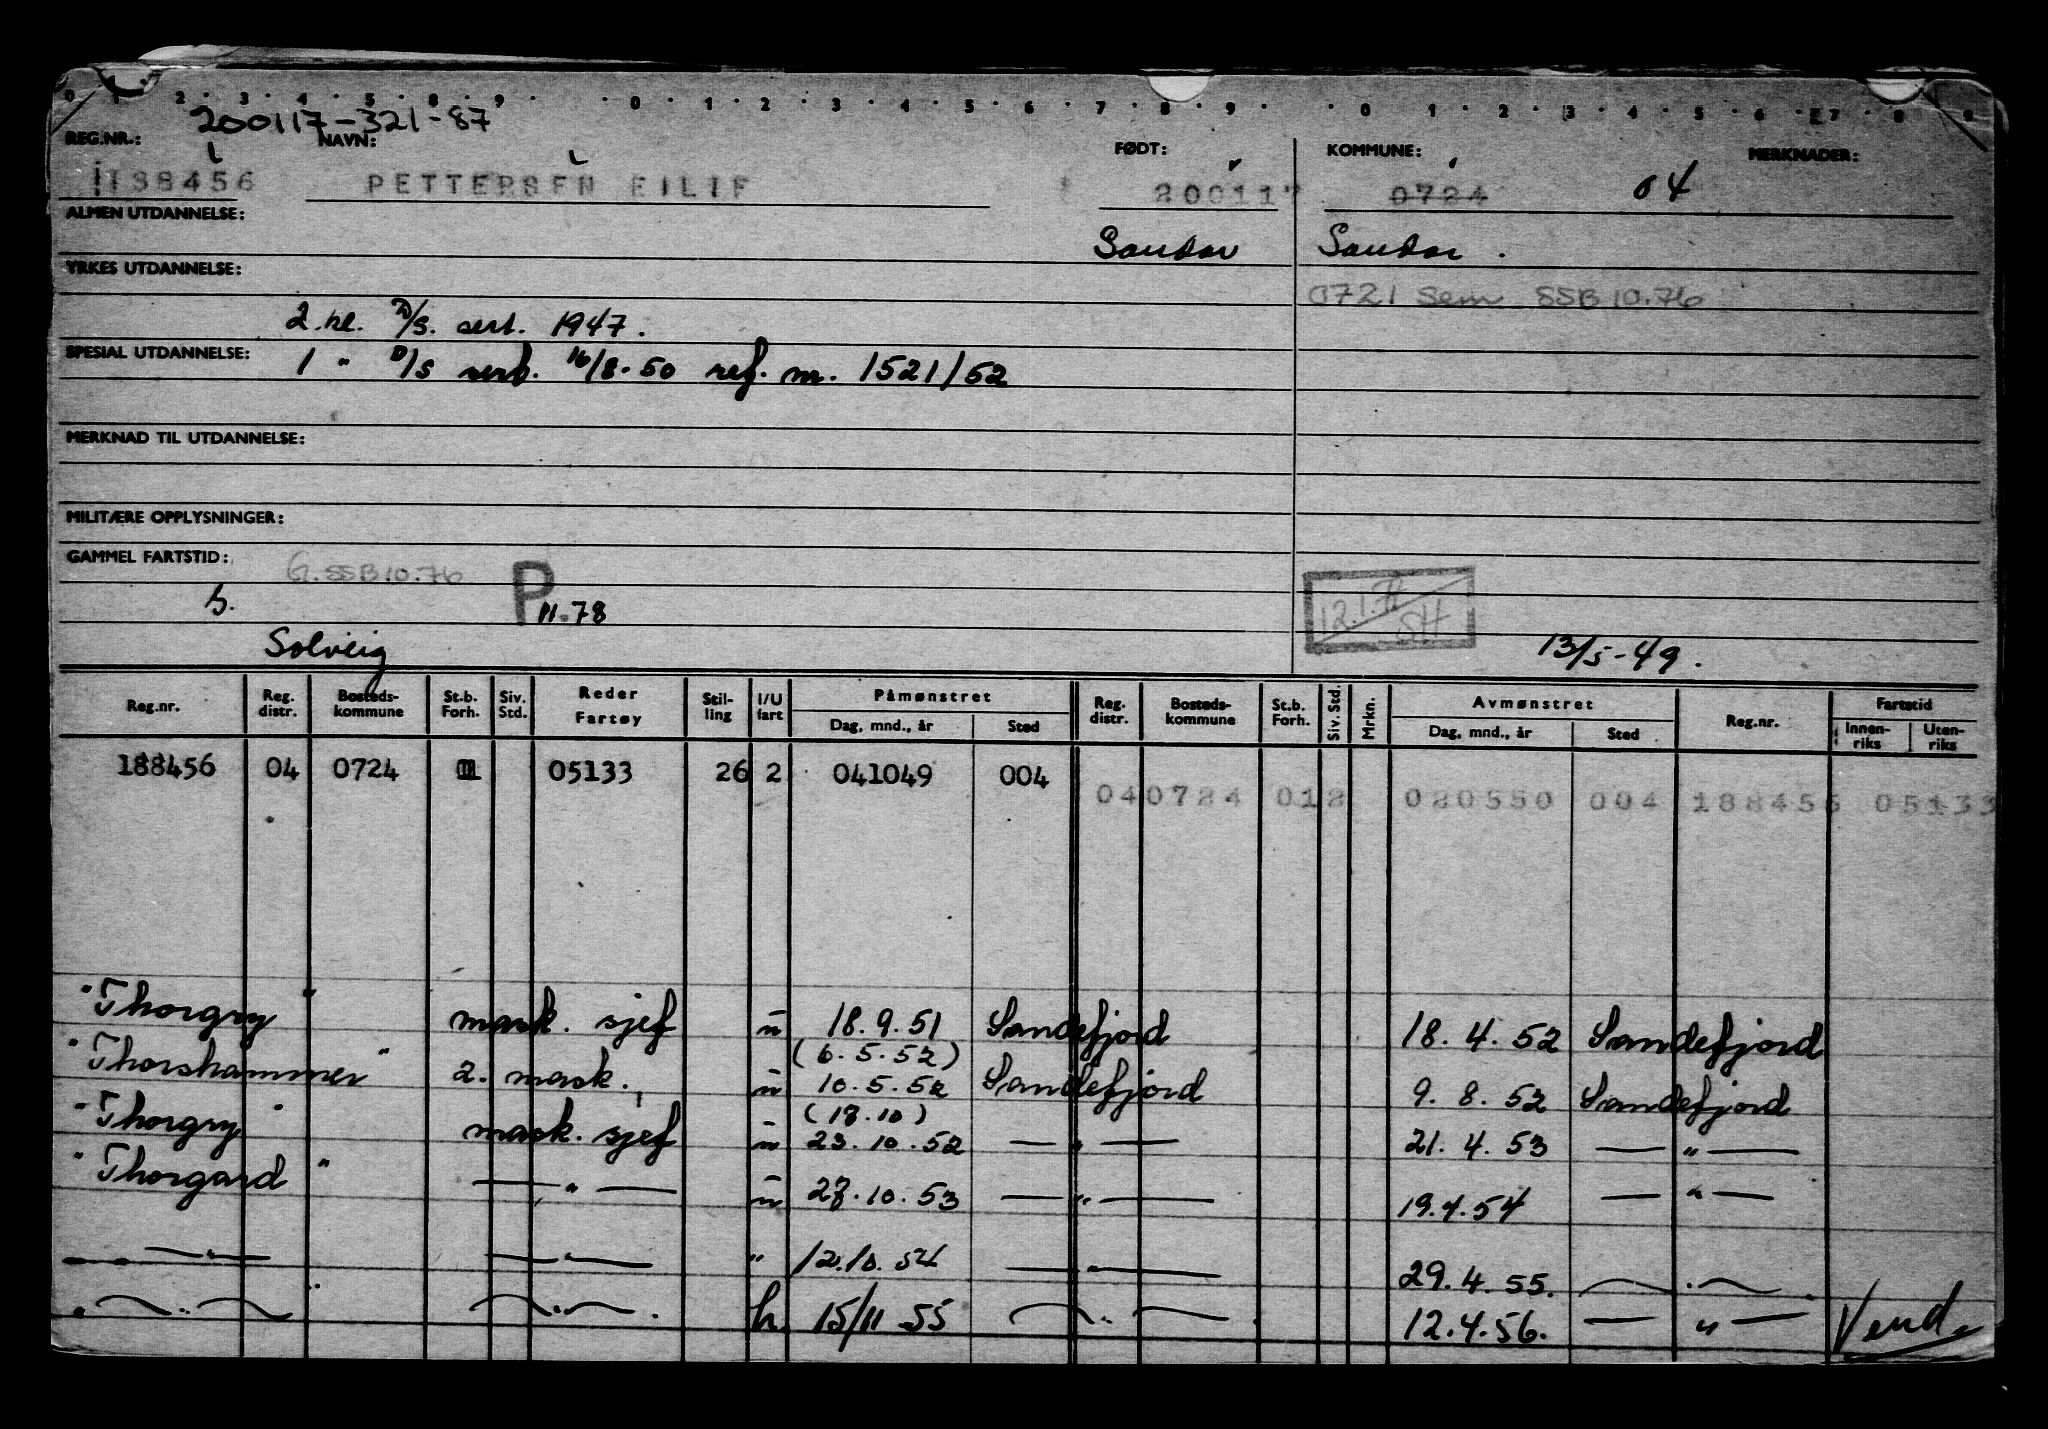 0 1 2 3 4 5 6 9 0 1 2 3 4 5 6 7 8 9 0 1 2 3 4 5 6 7 8 9
200117-321-87
REG.NR.: NAVN: FØDT: KOMMUNE: MERKNADER:
188456 PETTERSEN EILIF 200117 0724 04
ALMEN UTDANNELSE: Sandar Sandar.
YRKES UTDANNELSE:
0721 Sem SSB 10.76
2.kl. D/S. sert. 1947.
SPESIAL UTDANNELSE: 1 " D/S sert. 16/8-50 ref. nr. 1521/52
MERKNAD TIL UTDANNELSE:
MILITÆRE OPPLYSNINGER:
GAMMEL FARTSTID: G.SSB 10.76
P 11.78
Solveig 13/5-49.
Reg.nr. Reg. distr. Bosteds-kommune St.b. Forh. Siv. Std. Reder Fartøy Stil-ling I/U fart Påmønstret Dag, mnd., år Sted Reg. distr. Bosteds-kommune St.b. Forh. Siv. Std. Mrkn. Avmønstret Dag, mnd., år Sted Reg.nr. Fartstid Innen-riks Uten-riks
188456 04 0724 05133 26 2 041049 004
040724 012 020550 004 188456 05133
"Thorgry" mask. sjef u 18.9.51 Sandefjord 18.4.52 Sandefjord
(6.5.52)
"Thorshammer" 2. mask. u 10.5.52 Sandefjord 9.8.52 Sandefjord
(18.10)
"Thorgry" mask. sjef u 23.10.52 — " — 21.4.53 — " —
"Thorgard" — " — u 27.10.53 — " — 19.4.54 — " —
— " — — " — " 12.10.54 — " — 29.4.55. — " —
— " — — " — h 15/11 55 — " — 12.4.56. — " — Vend.